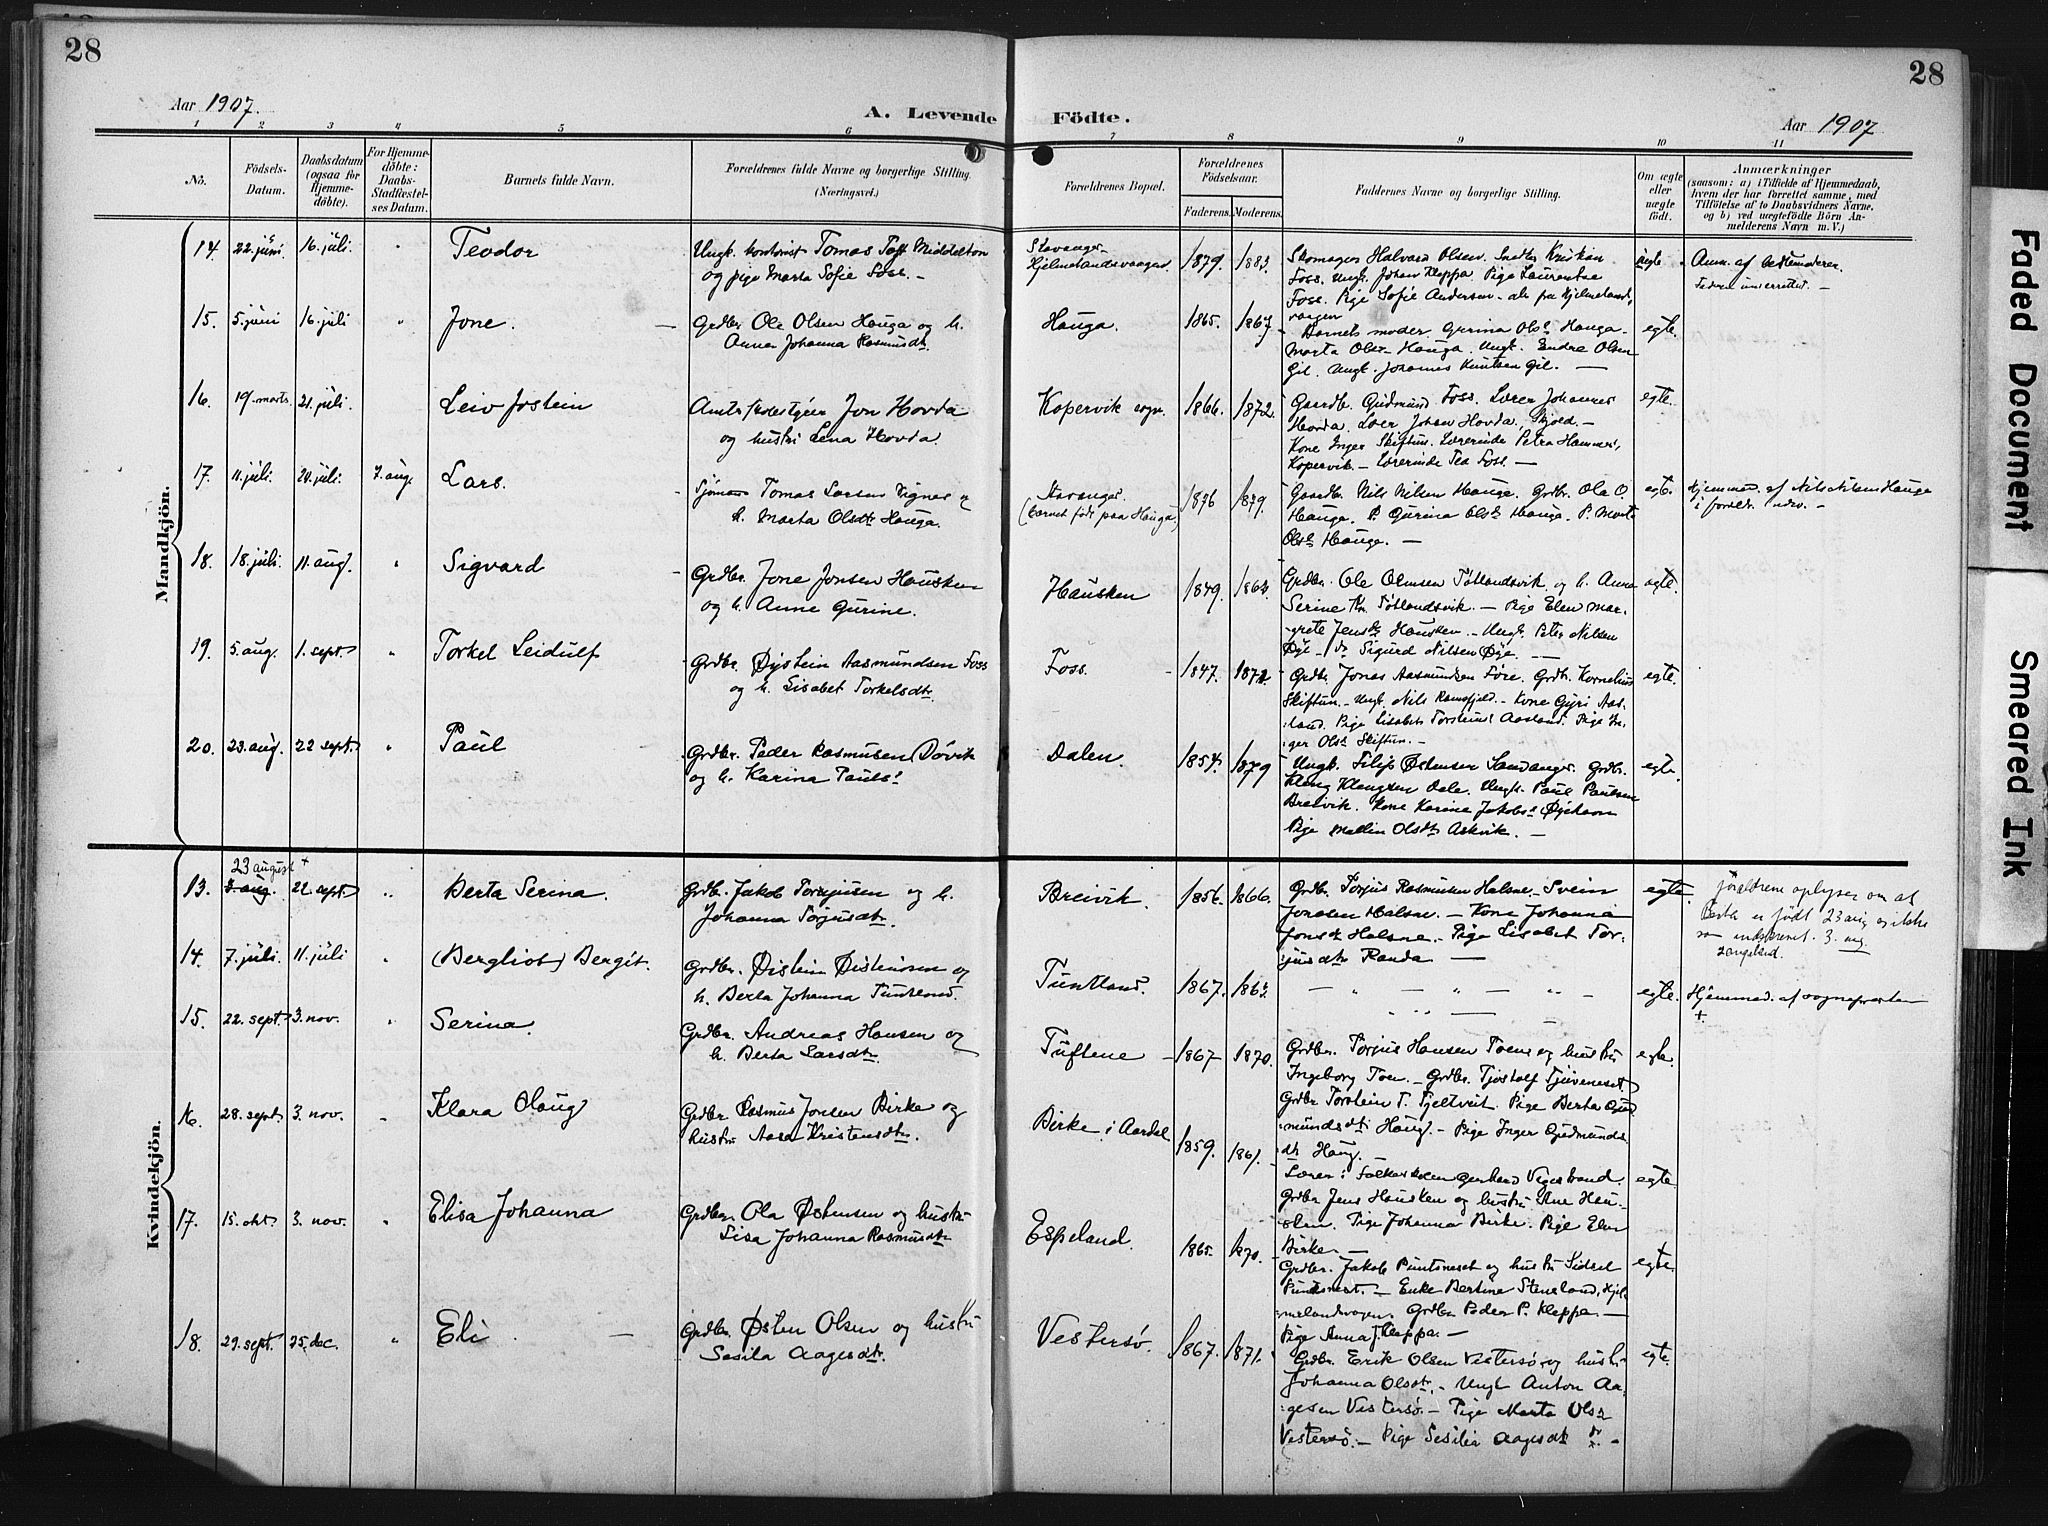 28
28
Aar 1907.
A. Levende Födte.
Aar 1907
1 2 3 4 5 6 7 8 9 10 11
No.
Födsels-
Datum.
Daabsdatum
(ogsaa for
Hjemme-
döbte).
For Hjemme-
döbte:
Daabs-
Stadfæstel-
ses Datum.
Barnets fulde Navn.
Forældrenes fulde Navne og borgerlige Stilling.
(Næringsvei.)
Forældrenes Bopæl.
Forældrenes
Födselsaar.
Faderens. Moderens.
Faddernes Navne og borgerlige Stilling.
Om ægte
eller
uægte
födt.
Anmærkninger
(saasom: a) i Tilfælde af Hjemmedaab,
hvem der har forrettet samme, med
Tilföielse af to Daabsvidners Navne.
og b) ved uægtefödte Börn An-
melderens Navn m. V.)
Mandkjön.
14. 22. juni 16. juli " Teodor
Ungk. kontorist Tomas Middelton
og pige Marta Sofie Foss. -
Stavanger
Hjelmelandsvaagen
1879. 1883.
Skomager Halvard Olsen.
Foss. Ungk. Johan Kleppa. Pige Laurentse
Foss. Pige Sofie Andersen - alle fra Hjelmelands
vaagen
uegte
Anm. af bestemoderen.
15. 5. juni 16. juli " Jone.
Grdbr. Ole Olsen Hauga og h.
Anna Johanna Rasmusdtr.
Hauga.
1865. 1867
Barnets moder Gurina Olsd. Hauga -
Marta Olsd. Hauga. Ungk. Endre Olsen
Gil. Ungk. Johannes Knutsen Gil. -
egte.
16. 19. marts. 21. juli. Leiv Jostein
Jon Hovda
og hustru Lena Hovda.
Kopervik sogn.
1866. 1872.
Gaardb. Gudmund Foss. Lærer Johannes
Hovda. Lærer Johan Hovda, Skjold. -
Kone Inger Skiftun. Lærerinde Petra Hammer,
Kopervik. - Lærerinde Tea Foss. -
egte.
17. 11. juli. 20. juli. 7. aug. Lars.
Sjømand Tomas Larsen Vignes og
h. Marta Olsdtr Hauga.
Stavanger.
(barnet födt paa Hauga)
1876 1879.
Gaardbr. Nils Nilsen Hauge. Grdbr. Ola O.
Hauga. P. Gurina Olsd. Hauga. P. Marta
Olsd. Hauge. -
egte.
Hjemmed. af Nils Nilsen Hauge
18. 18. juli. 11. aug. " Sigvard
Grdbr. Jone Jonsen Hausken
og h. Anne Gurine.
Hausken
Grdbr. Ole Olsen Tøtlandsvik og h. Anna
Serine Tøtlandsvik. - Pige Elen Mar-
grete Jensdtr Hausken. - Ungk. Peter Nilsen
Øye - Sigurd Nilsen Øye. -
egte.
19. 5. aug. 1. sept. " Torkel Leidulf
Grdbr. Øystein Aasmundsen Foss
og h. Lisabet Torkelsdtr.
Foss.
1847.
Grdbr. Jonas Aasmundsen Føre. Grdbr. Kornelius
Skiftun. - Ungk. Nils Ramsfjeld. - Kone Guri Aas-
land. Pige Lisabet Aasland. Pige In-
ger Olsd. Skiftun. -
egte.
20. 23. aug. 22 sept. " Paul
Grdbr. Peder Rasmusen Døvik
og h. Karina Pauls.
Dalen.
1854. 1879
Ungk. Filip Østensen Landanger. Grdbr.
Kleng Klengsen Dale. Ungk. Paul Paulsen
Breivik. Kone Karina Jakobs.
Pige Mallin Olsdtr Askvik. -
egte.
Kvindekjön.
23 august
13. 3. aug. 22. sept. " Berta Serina.
Grdb. Jakob Torjusen og h.
Johanna Torjusdtr.
Breivik.
1856. 1866.
Grdbr. Torjus Rasmusen Halsne. - Svein
Jonasen Halsne. - Kone Johanna
Jonsdtr Halsne. - Pige Lisabet Tor-
jusdtr Randa -
egte.
Foreldrene oplyser om at
Berta er født 23 aug og ikke
som indskrevet 3. aug.
14. 7. juli. 11. juli " (Bergliot) Bergit.
Grdbr. Øistein Øisteinsen og
h. Berta Johanna Tuntland.
Tuntland.
1867.
egte.
Hjemmed. af sognepresten
+
15. 22. sept. 3. nov. " Serina.
Grdbr. Andreas Hansen og
h. Berta Larsdtr.
Tuftene
1867 1870.
Grdbr. Torjus Hansen Toen og hustru
Ingeborg Toen. - Grdbr. Tjostolf Tjuveneset
Grdbr Torstein T. Tjeltveit. Pige Berta Gud-
mundsdtr Haug. - Pige Inger Gudmunds-
dtr Haug.
egte.
16. 28. sept. 3. nov. " Klara Olaug
Grdbr Rasmus Jonsen Birke og
hustru Aasa Kristensdtr.
Birke i Aardal
1859. 1861.
Lærer i folkeskolen Gerhard Vigestrand.
Grdbr Jens Hausken og hustru Ane Hau-
sken. Pige Johanna Birke. Pige Elen
Birke. -
egte.
17. 15. okt. 3. nov. " Elisa Johanna
Grdbr. Ola Østensen og hustru
Lisa Johanna Rasmusdtr
Espeland.
1865. 1870.
Grdbr. Jakob Puntsneset og hustru Sidsel
Puntsneset. - Enke Bertine Steneland, Hjel-
melandsvagen. Grdbr Peder P. Kleppa. -
Pige Anna J. Kleppa. -
egte.
18. 29. sept. 25. dec. " Eli. -
Grdbr. Østen Olsen og hustru
Sesila Aagesdtr.
Vestersø.
1867. 1871.
Grdbr. Erik Olsen Vestersø og hustr.
Johanna Olsdtr. - Ungk Anton Aa-
gesen Vestersø. - Pige Marta Olsd.
Vestersø. - Pige Sesilia Aagesdtr
egte.
Faded Document
Smeared Ink